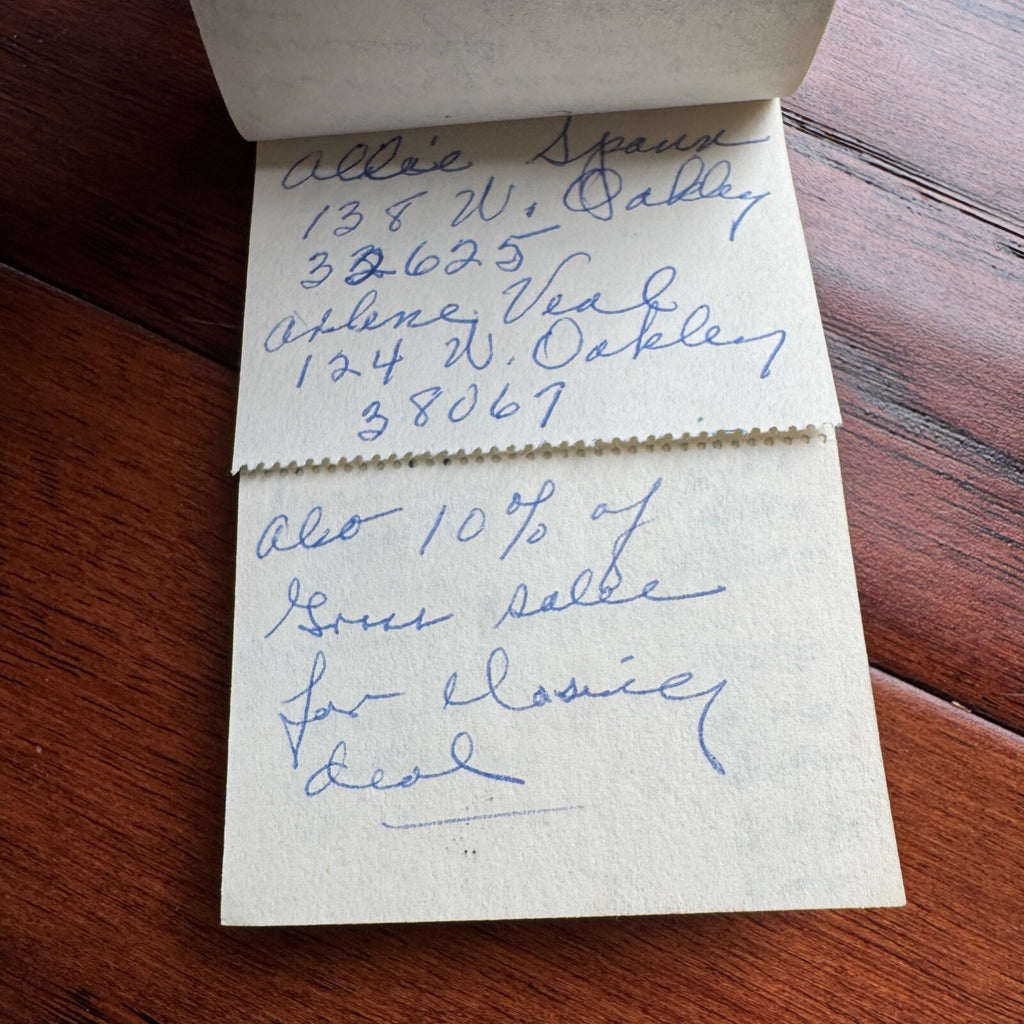 Allie Spann
138 W. Oakley
32625
Arlene Veal
124 W. Oakley
38067
Also 10% of
Gross sale
for closing
deal